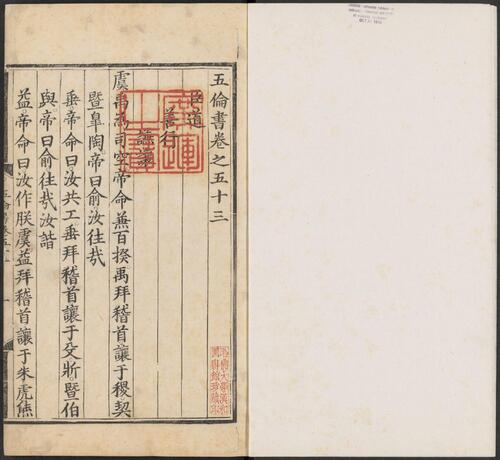 五倫書卷之五十三
臣道
善行
謙讓
虞禹為司空帝命兼百揆禹拜稽首讓于稷契
暨皐陶帝曰俞汝往哉
垂帝命曰汝共工垂拜稽首讓于殳斨暨伯
與帝曰俞往哉汝諧
益帝命曰汝作朕虞益拜稽首讓于朱虎熊
廣運
之寶